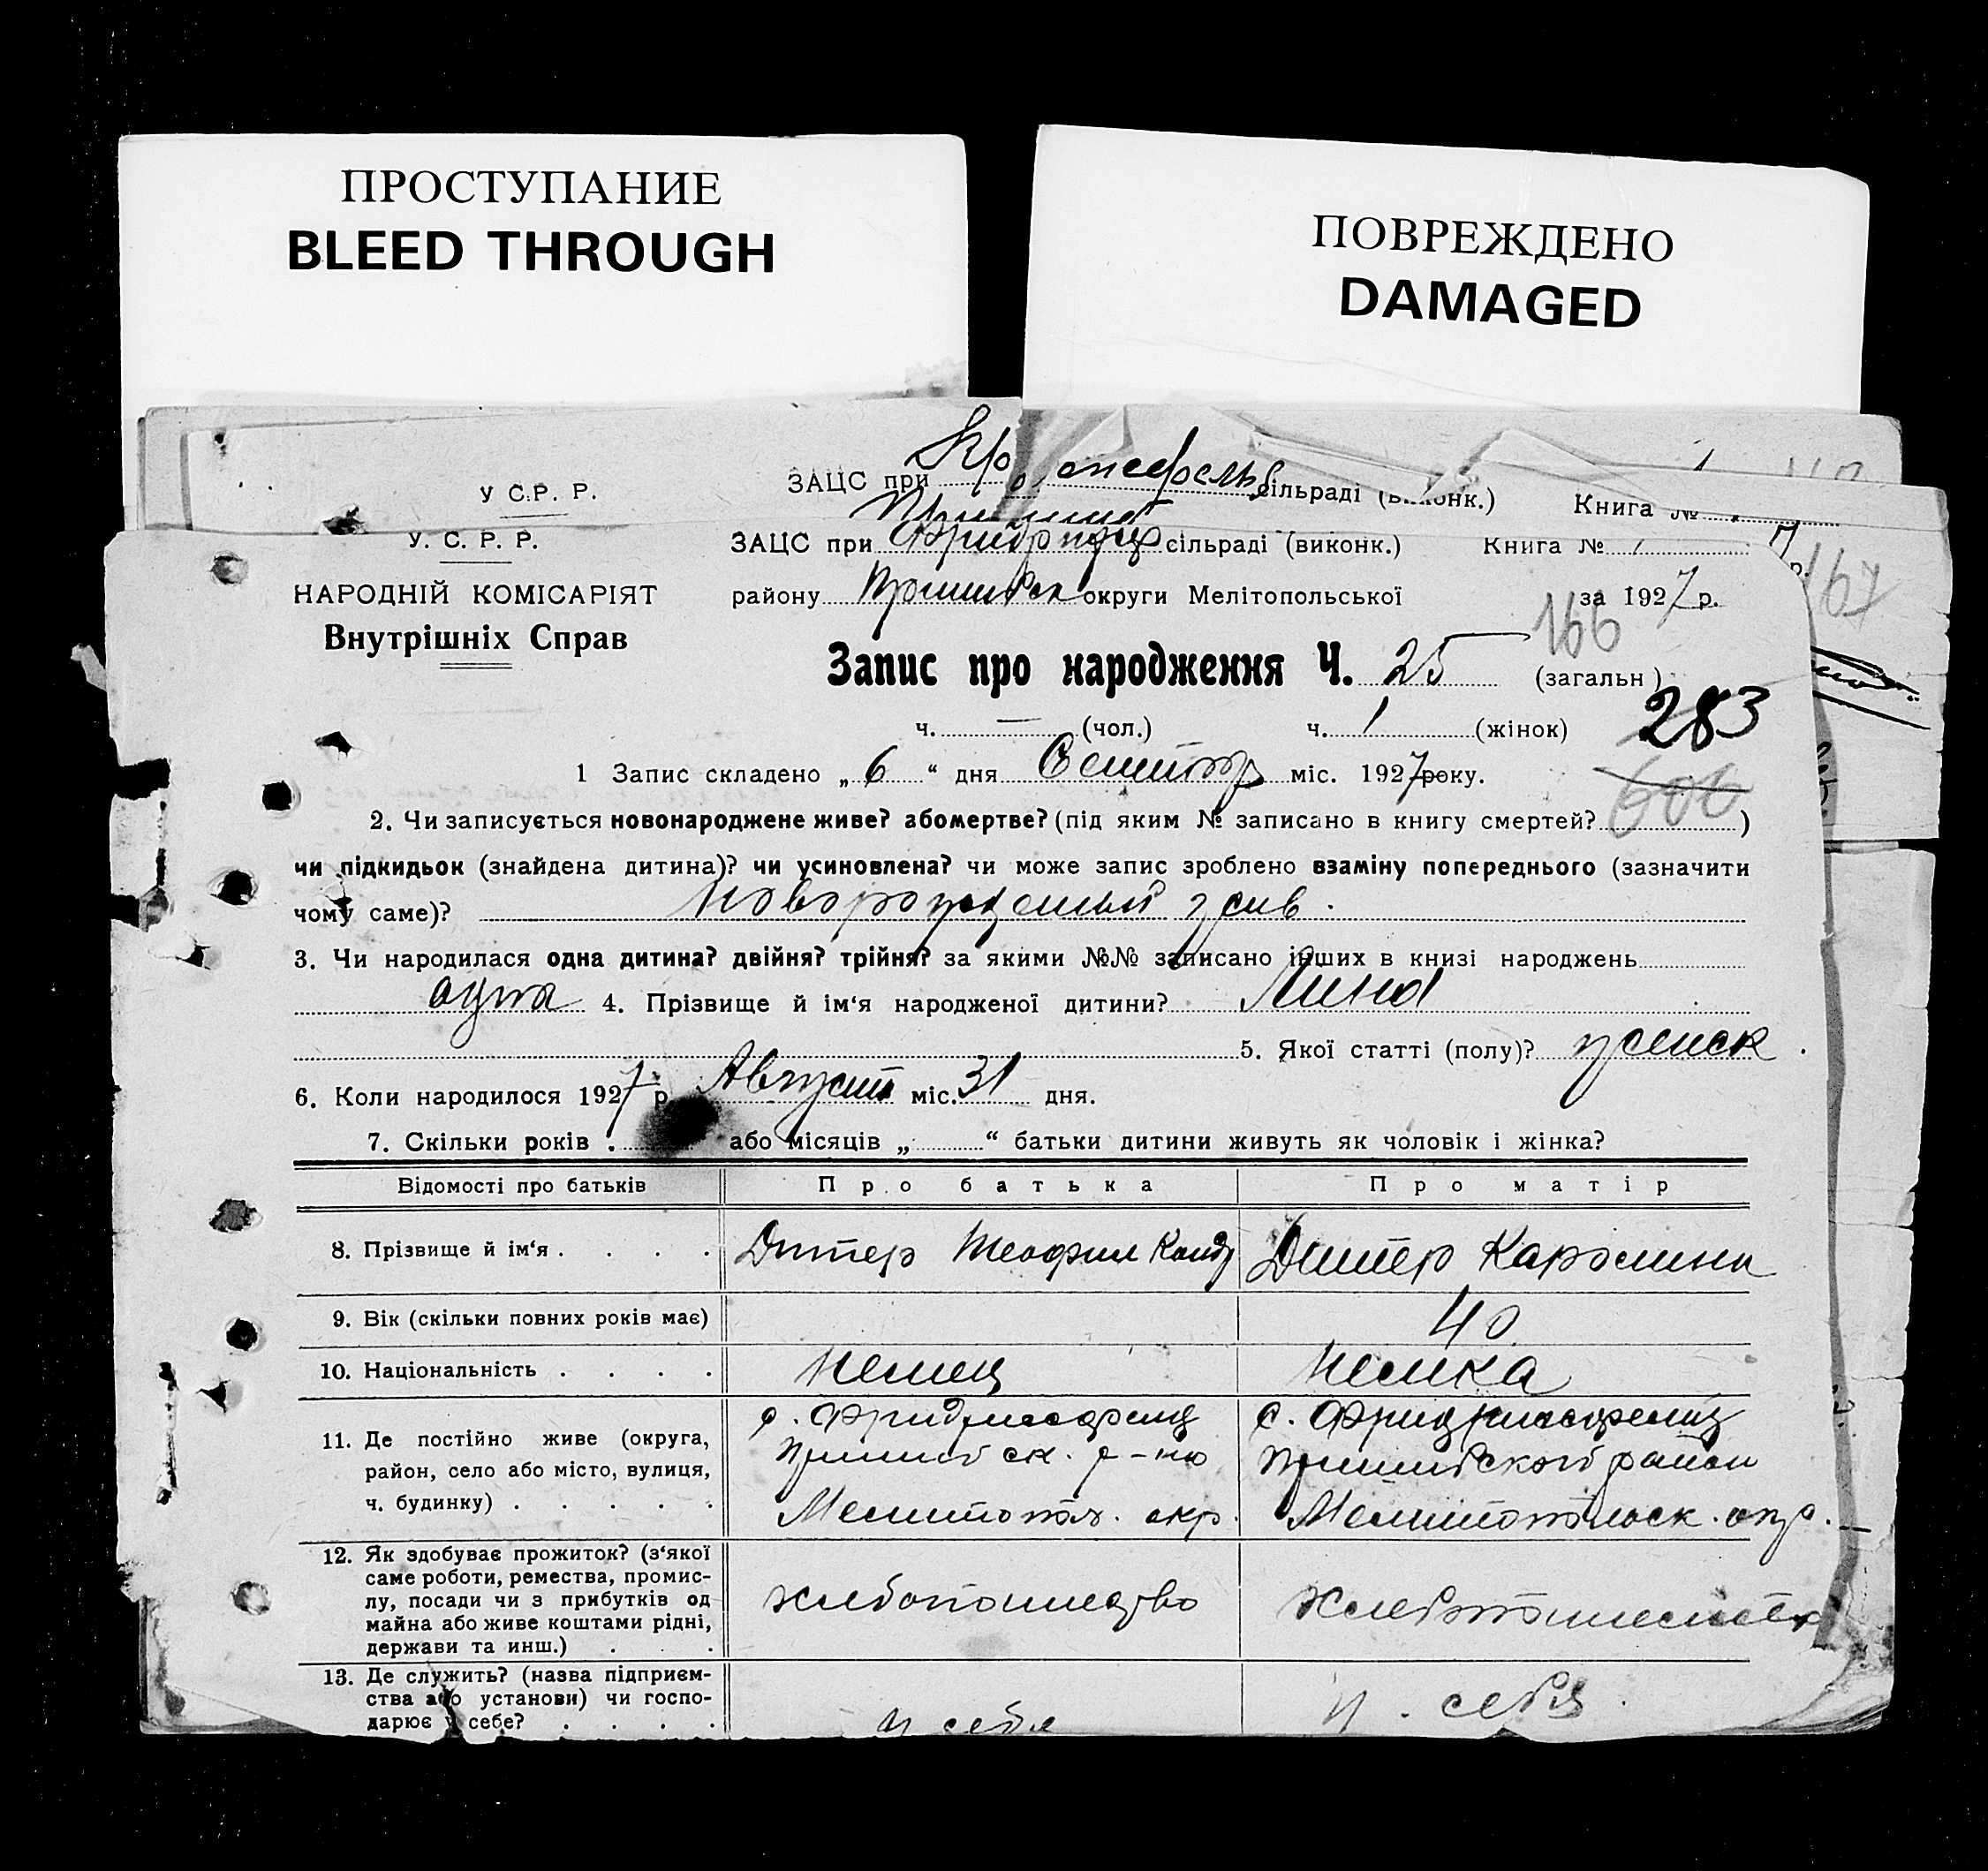 ПРОСТУПАНИЕ
BLEED THROUGH
ПОВРЕЖДЕНО
DAMAGED
У С.Р. Р.
ЗАЦС при сільраді ( Книга №
У. С. Р. Р.
ЗАЦС при сільраді (виконк.) Книга №
НАРОДНІЙ КОМІСАРІЯТ
Внутрішніх Справ
району округи Мелітопольської за 1927 р.
166
167
Запис про народження Ч. 25 (загальн )
ч. — (чол.) ч. 1 (жінок) 283
1 Запис складено „ 6 “ дня міс. 1927 року.
606
2. Чи записується новонароджене живе? або мертве? (під яким № записано в книгу смертей? )
чи підкидьок (знайдена дитина)? чи усиновлена? чи може запис зроблено взаміну попереднього (зазначити
чому саме)? новорожденный жив.
3. Чи народилася одна дитина? двійня? трійня? за якими №№ записано інших в книзі народжень
одна 4. Прізвище й ім‘я народженої дитини? Лина
5. Якої статті (полу)? женск.
6. Коли народилося 1927 р. Август міс. 31 дня.
7. Скільки років або місяців „ “ батьки дитини живуть як чоловік і жінка?
Відомості про батьків Про батька Про матір
8. Прізвище й ім‘я . . . . Дитер Теофил Дитер Каролина
9. Вік (скільки повних років має) 40
10. Національність . . . . Немец Немка
11. Де постійно живе (округа,
район, село або місто, вулиця,
ч. будинку) . . . . .
с.
Пришибск. р-на
Мелитопол. окр.
с.
Пришибского район
Мелитопольск. окр.
12. Як здобуває прожиток? (з‘якої
саме роботи, ремества, промис-
лу, посади чи з прибутків од
майна або живе коштами рідні,
держави та инш.) . .
хлебопашество
13. Де служить? (назва підприєм-
ства або установи) чи госпо-
дарює у себе? . . . .
у себя
у себя